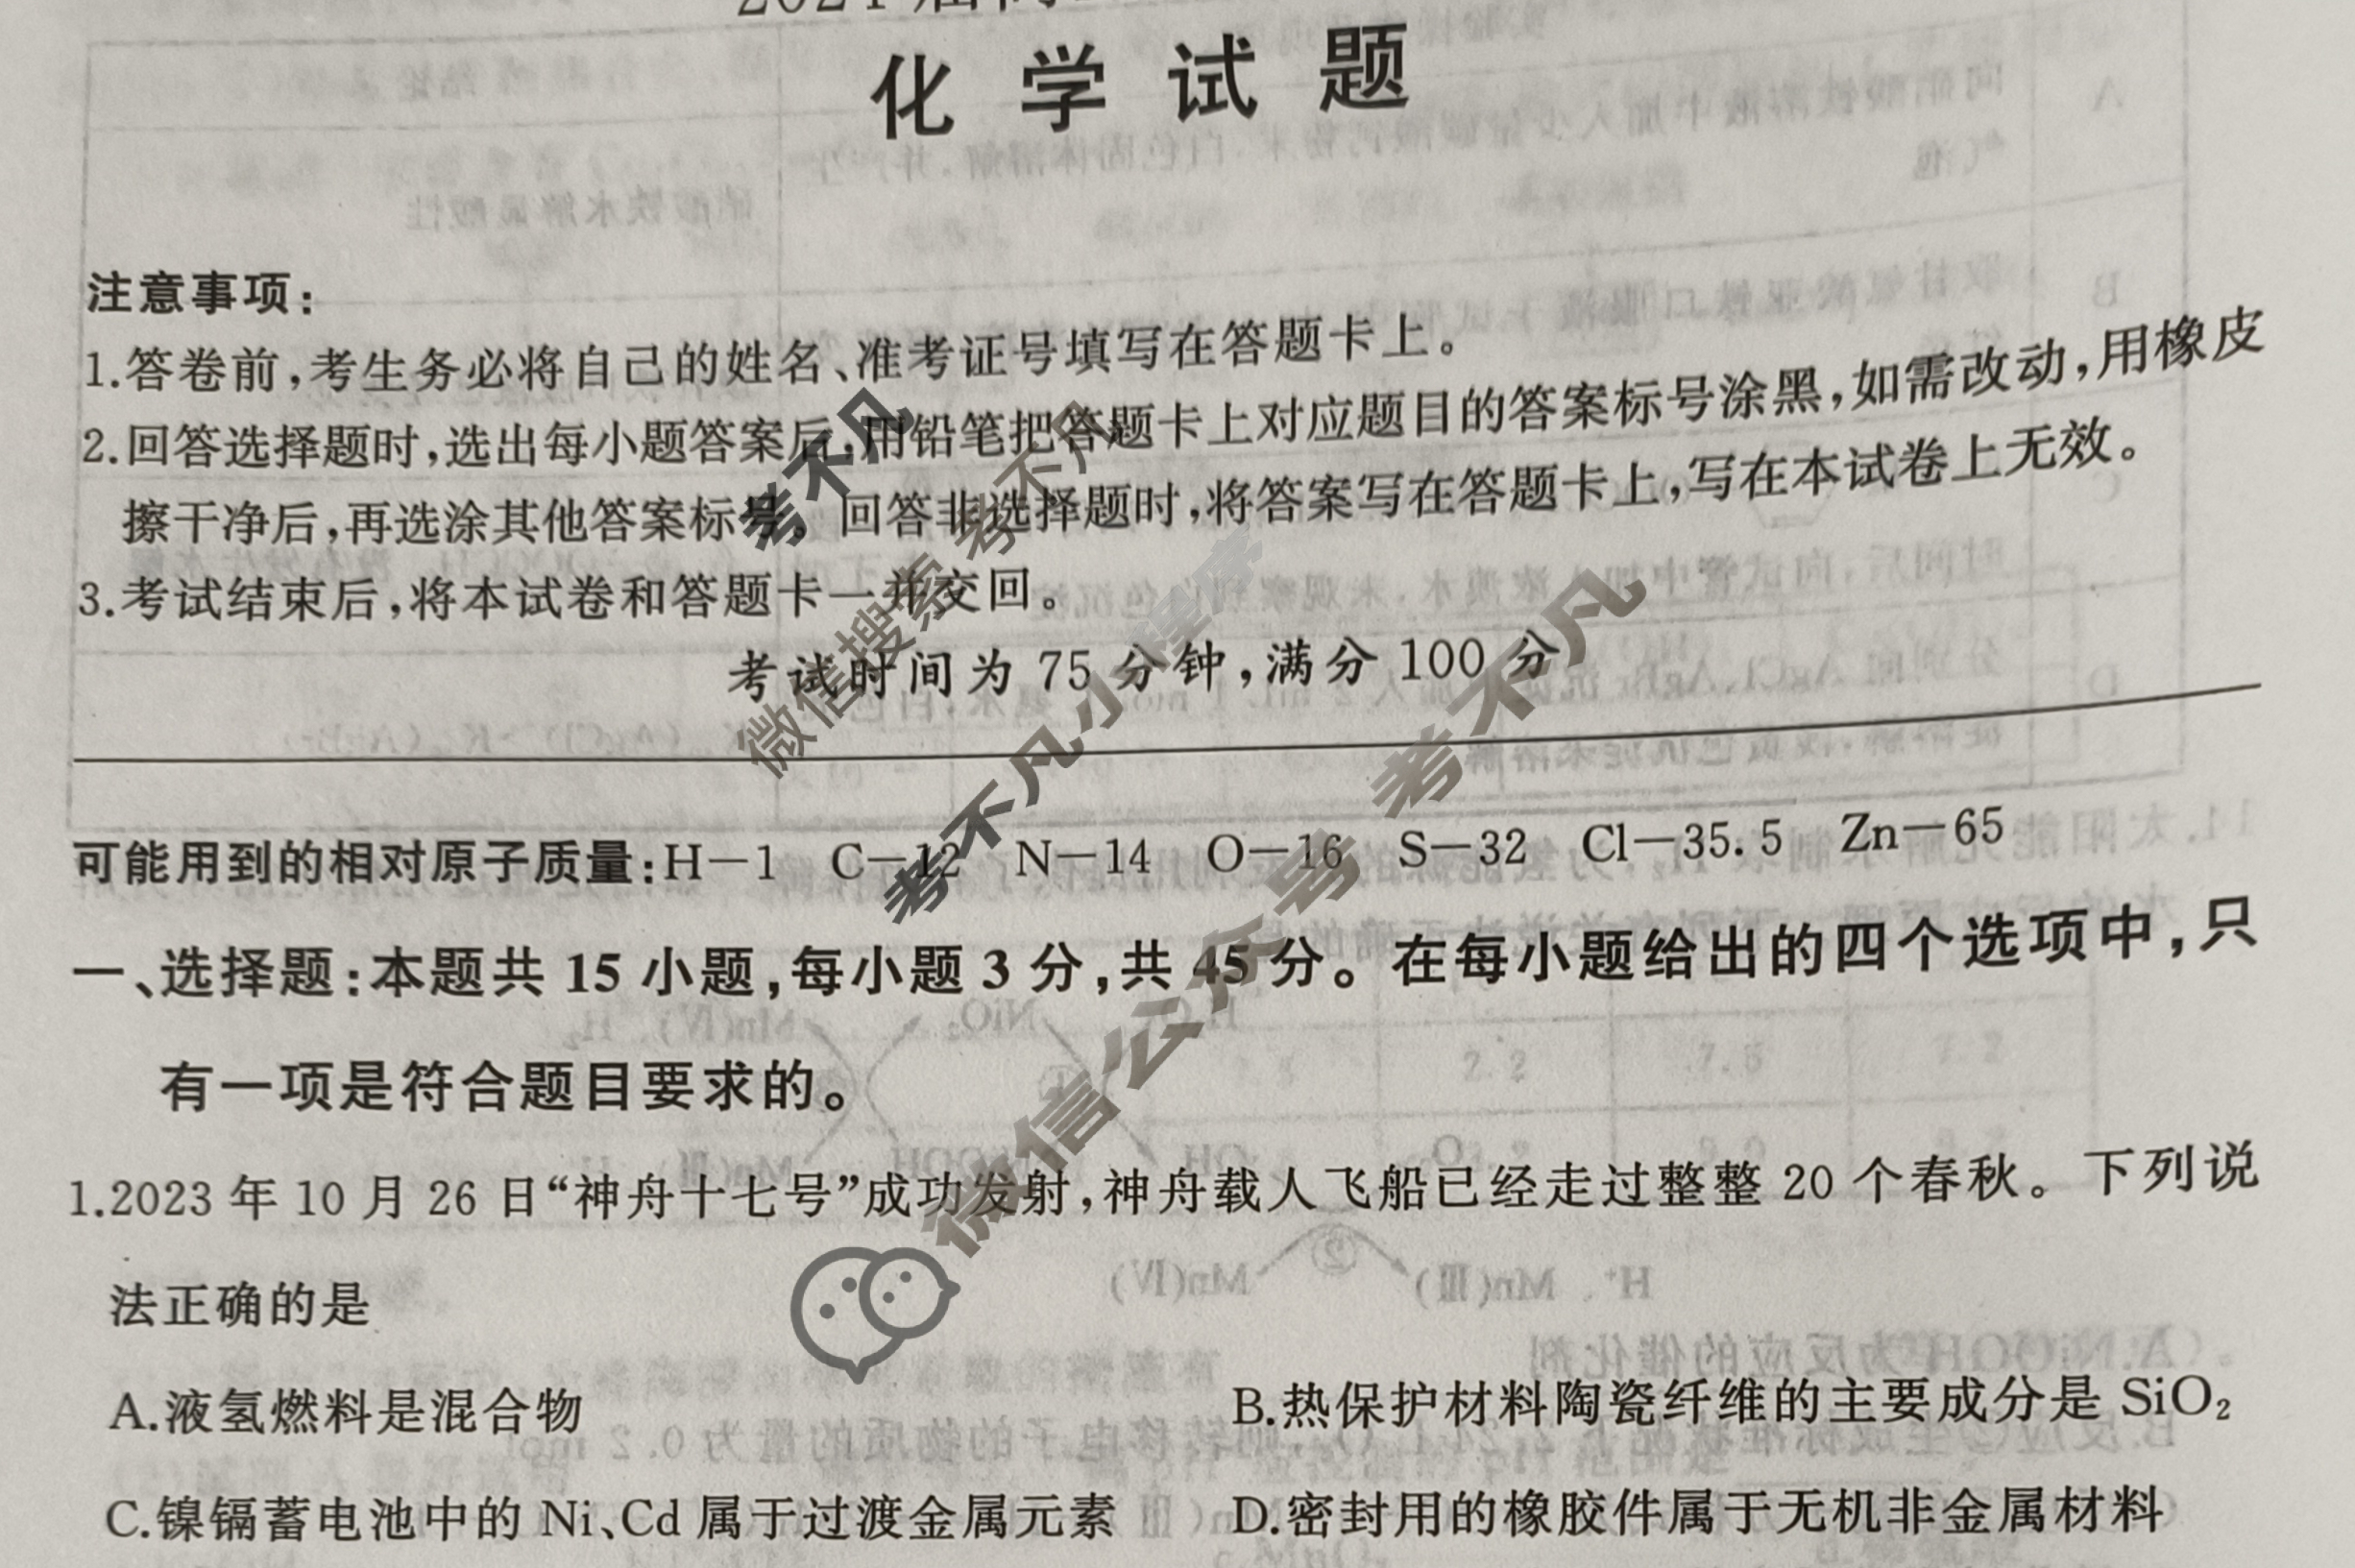 化学试题
注意事项：
1.答卷前，考生务必将自己的姓名、准考证号填写在答题卡上。
2.回答选择题时，选出每小题答案后，用铅笔把答题卡上对应题目的答案标号涂黑，如需改动，用橡皮
擦干净后，再选涂其他答案标号。回答非选择题时，将答案写在答题卡上，写在本试卷上无效。
3.考试结束后，将本试卷和答题卡一并交回。
考试时间为75分钟，满分100分
可能用到的相对原子质量：H—1 C—12 N—14 O—16 S—32 Cl—35.5 Zn—65
一、选择题：本题共15小题，每小题3分，共45分。在每小题给出的四个选项中，只
有一项是符合题目要求的。
1.2023年10月26日“神舟十七号”成功发射，神舟载人飞船已经走过整整20个春秋。下列说
法正确的是
A.液氢燃料是混合物
B.热保护材料陶瓷纤维的主要成分是SiO₂
C.镍镉蓄电池中的Ni、Cd属于过渡金属元素
D.密封用的橡胶件属于无机非金属材料
考不凡
微信搜索 考不凡
考不凡小程序
微信公众号 考不凡